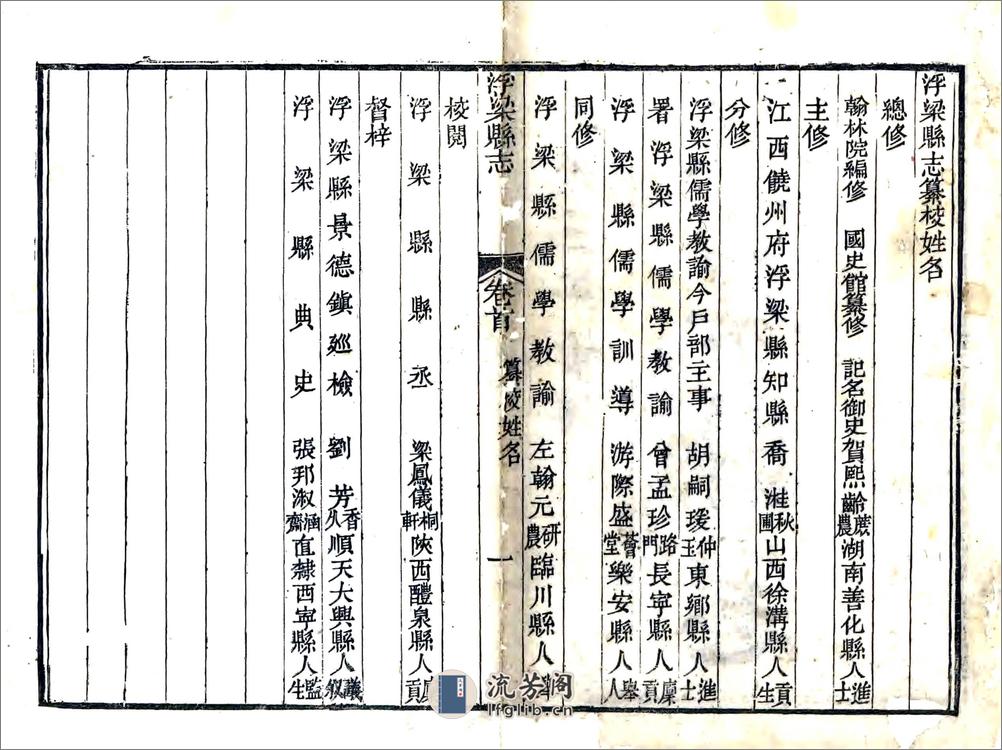 浮梁縣志纂校姓名
總修
翰林院編修 國史館纂修 記名御史賀熙齡蔗農湖南善化縣人進士
主修
江西饒州府浮梁縣知縣喬溎秋圃山西徐溝縣人貢生
分修
浮梁縣儒學教諭今戶部主事 胡嗣瑗仲玉東鄉縣人進士
署浮梁縣儒學教諭 曾孟珍路門長寧縣人廩貢
浮梁縣儒學訓導 游際盛薈堂樂安縣人舉人
同修
浮梁縣儒學教諭 左翰元研農臨川縣人
浮梁縣志 卷首 纂校姓名 一
校閱
浮梁縣縣丞 梁鳳儀桐軒陝西醴泉縣人廩貢
督梓
浮梁縣景德鎮廵檢 劉芳香久順天大興縣人議叙
浮梁縣典史 張邦淑涵齋直隸西寧縣人監生
流芳閣
lfglib.cn